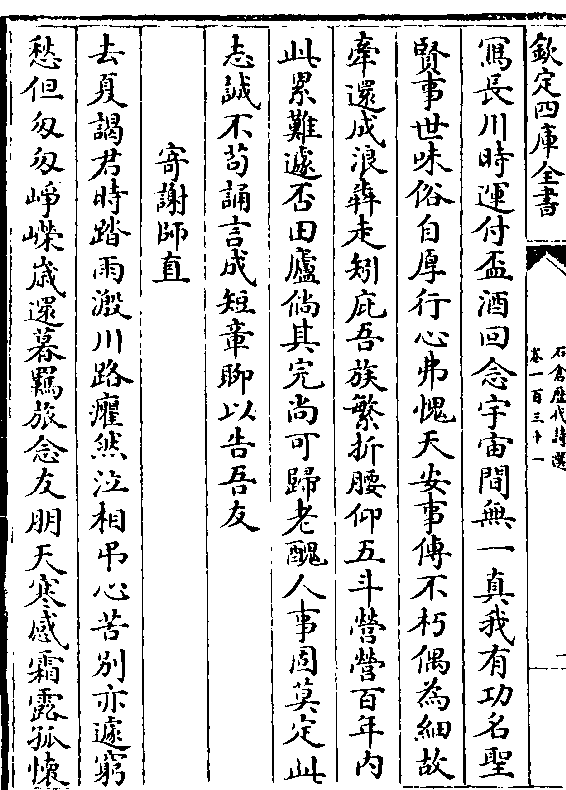 欽定四庫全書
石倉歴代詩選
卷一百三十一
一
寫長川時運付盃酒回念宇宙間無一真我有功名聖
賢事世味俗自厚行心弗愧天安事傳不朽偶為細故
牽還成浪犇走矧庇吾族繁折腰仰五斗營營百年内
此累難遽否田廬倘其完尚可歸老醜人事固莫定此
志誠不苟誦言成短章聊以告吾友
寄謝師直
去夏謁君時踏雨溵川路癯然泣相弔心苦别亦遽窮
愁但匆匆崢嶸嵗還暮羈旅念友朋天寒感霜露孤懐